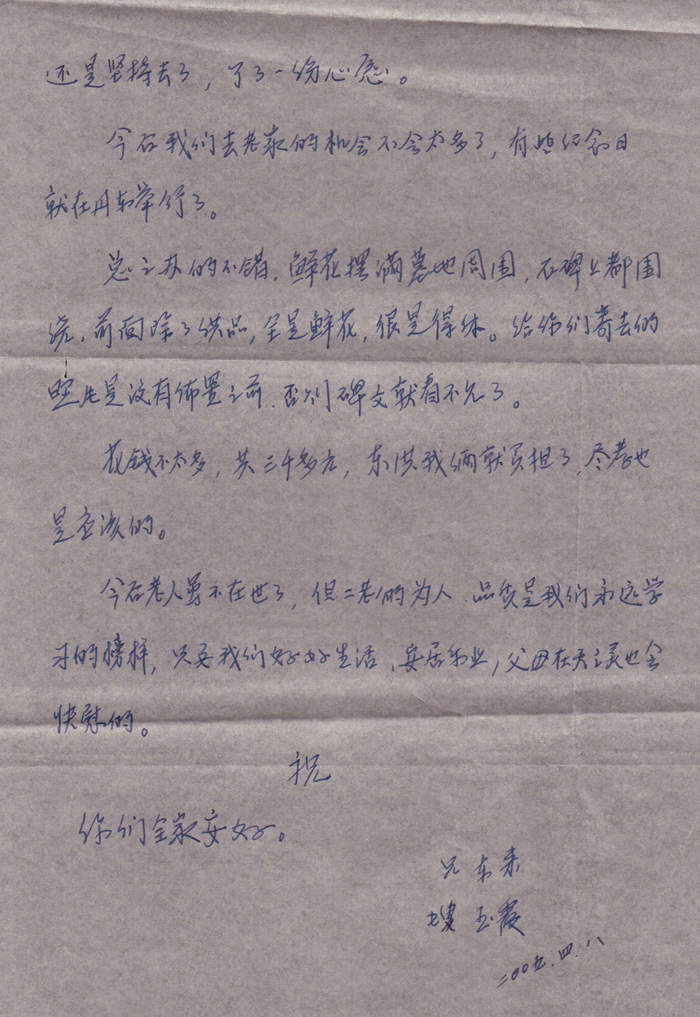 还是坚持去了，了了一份心愿。
今后我们去老家的机会不会太多了，有些纪念日
就在丹东举行了。
总之办的不错，鲜花摆满墓地周围，石碑上都围
绕，前面除了供品，全是鲜花，很是得体。给你们寄去的
照片是没有佈置之前，否则碑文就看不见了。
花钱不太多，共三千多元，东洪我俩就负担了，尽孝也
是应该的。
今后老人虽不在世了，但二老的为人、品质是我们永远学
习的榜样，只要我们好好生活、安居乐业，父母在天之灵也会
快慰的。
祝
你们全家安好。
兄 东来
嫂 玉霞
二00五.四.八